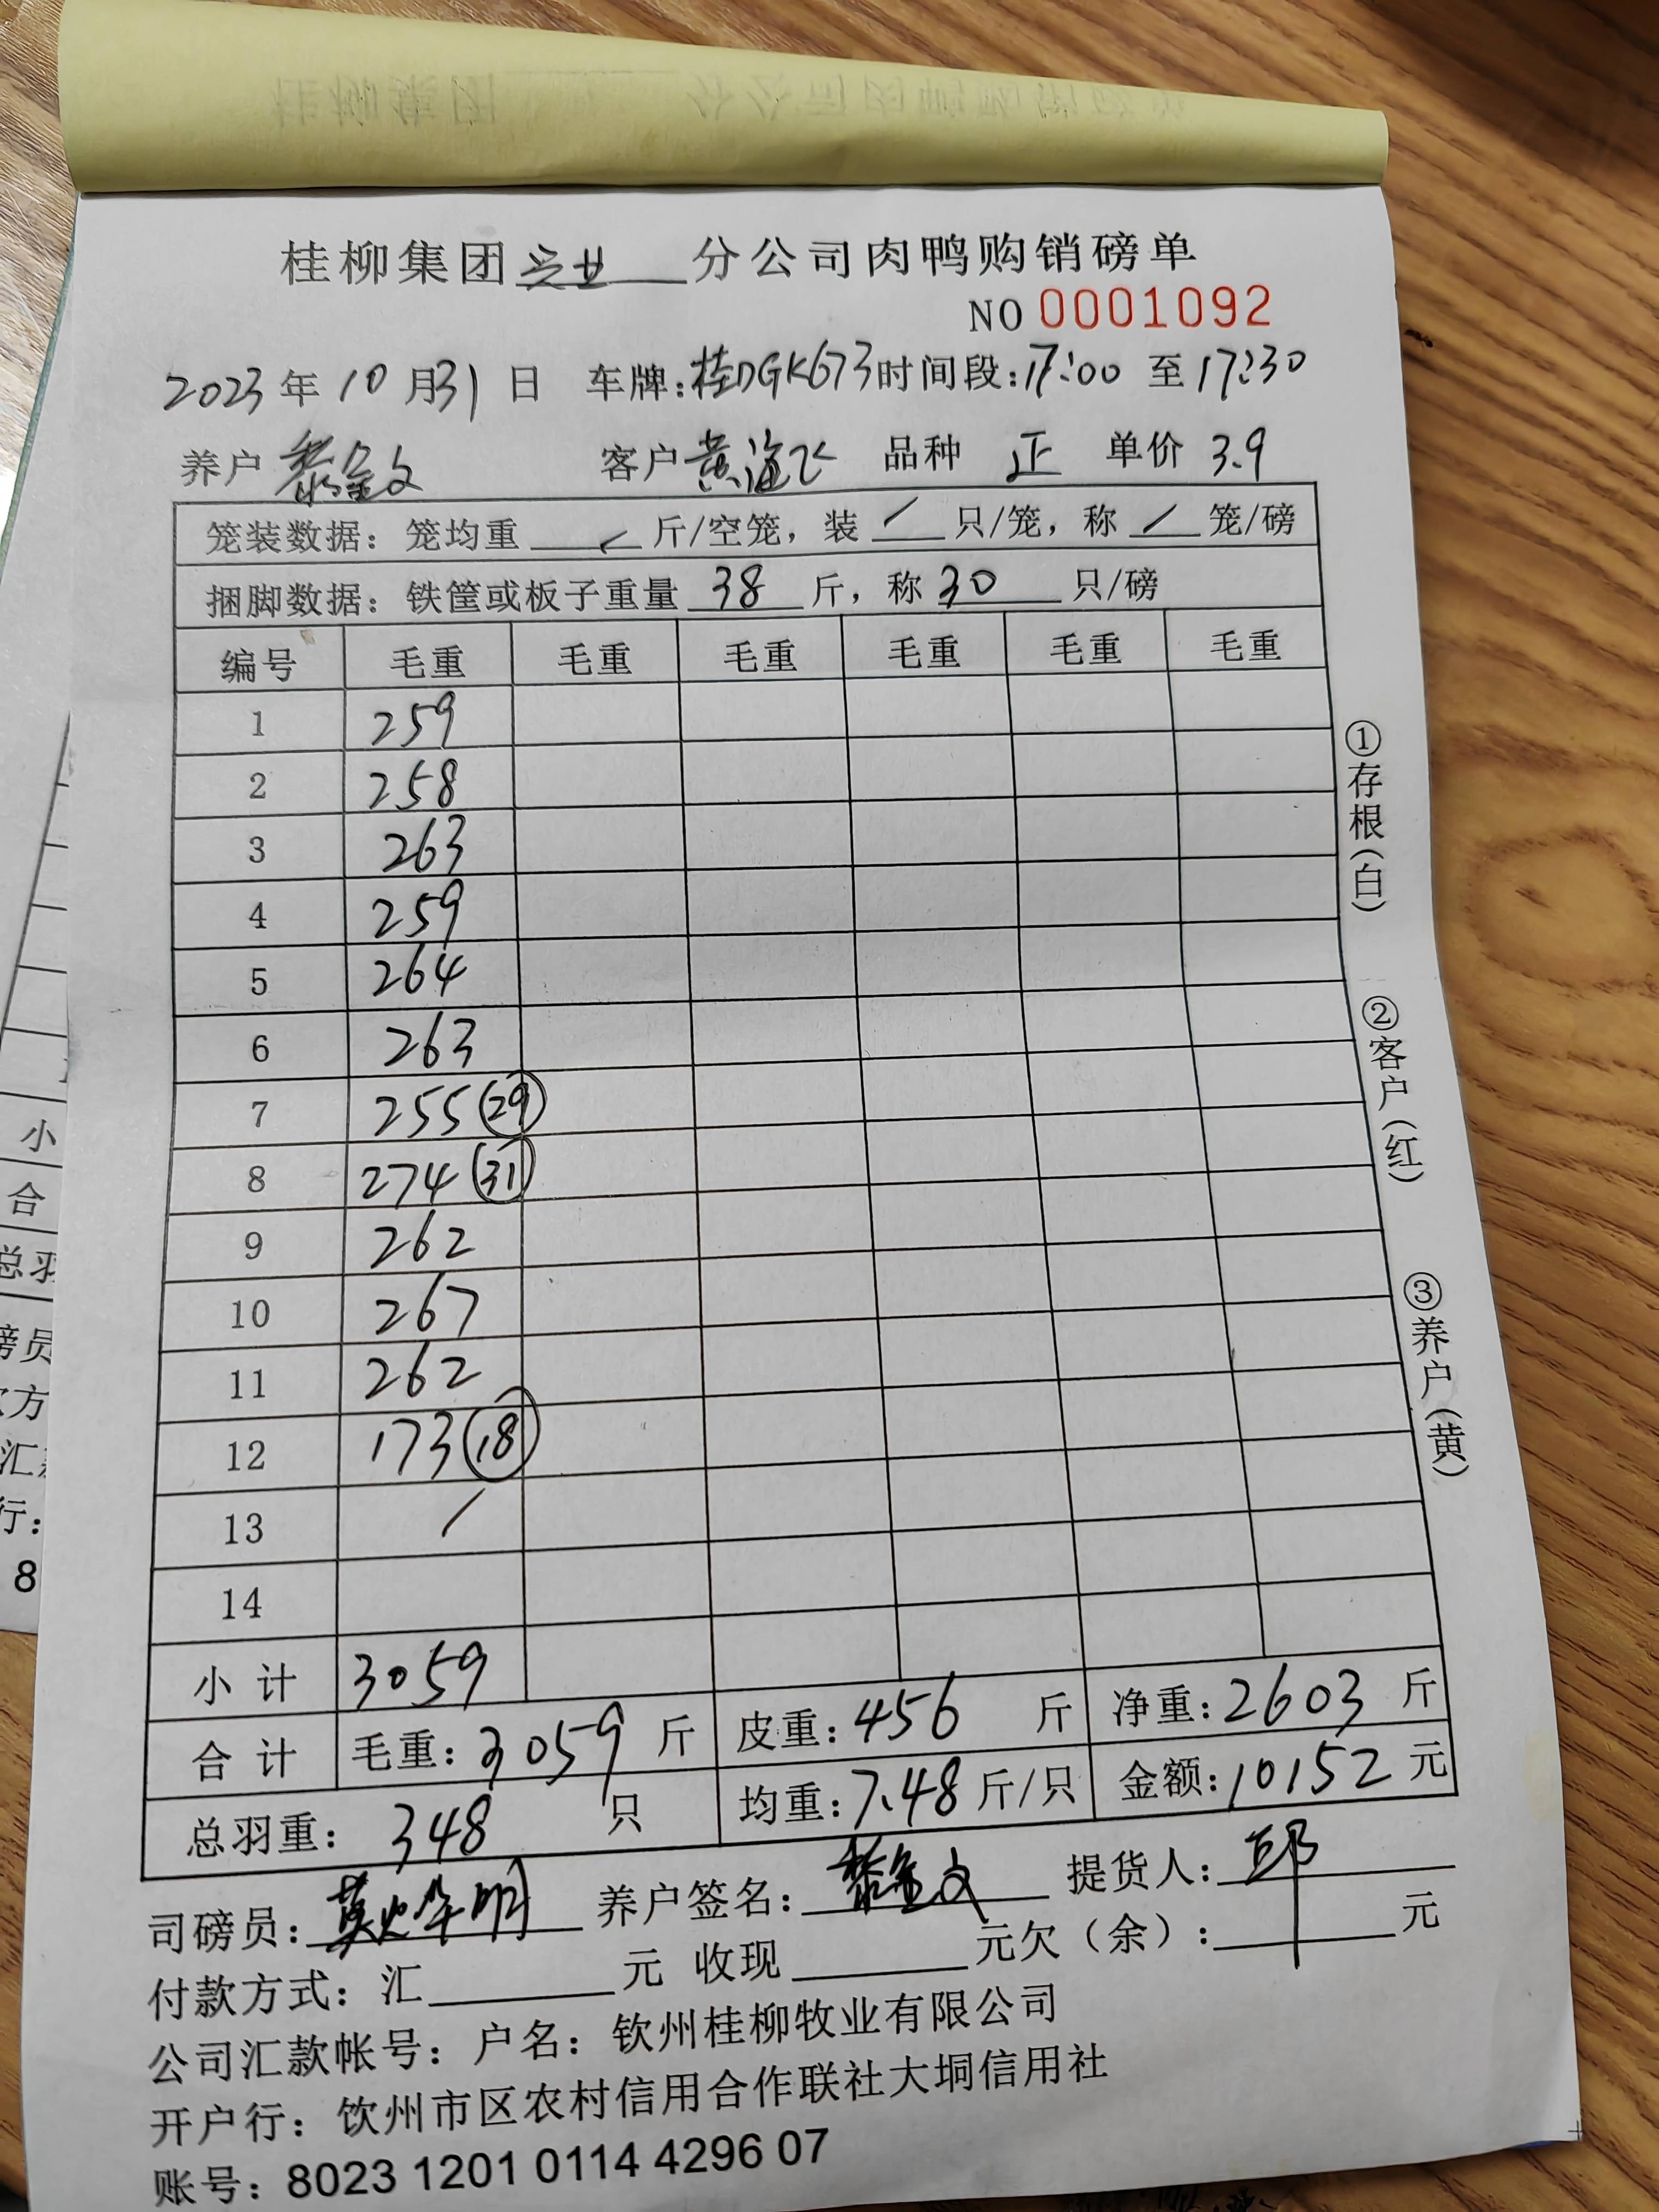 桂柳集团兴业分公司肉鸭购销磅单
NO 0001092
2023年10月31日 车牌:桂DGK673 时间段:17:00 至 17:30
养户 黎金文 客户 黄海飞 品种 正 单价 3.9
笼装数据: 笼均重 / 斤/空笼, 装 / 只/笼, 称 / 笼/磅
捆脚数据: 铁筐或板子重量 38 斤, 称 30 只/磅
编号 毛重 毛重 毛重 毛重 毛重 毛重
1 259
2 258
3 263
4 259
5 264
6 263
7 255 29
8 274 31
9 262
10 267
11 262
12 173 18
13 /
14
小计 3059
合计 毛重: 3059 斤 皮重: 456 斤 净重: 2603 斤
总羽重: 348 只 均重: 7.48 斤/只 金额: 10152 元
司磅员: 养户签名: 黎金文 提货人: 邱
付款方式: 汇 元 收现 元欠(余): 元
公司汇款帐号: 户名: 钦州桂柳牧业有限公司
开户行: 钦州市区农村信用合作联社大垌信用社
账号: 8023 1201 0114 4296 07
①存根(白)
②客户(红)
③养户(黄)
小
合
8